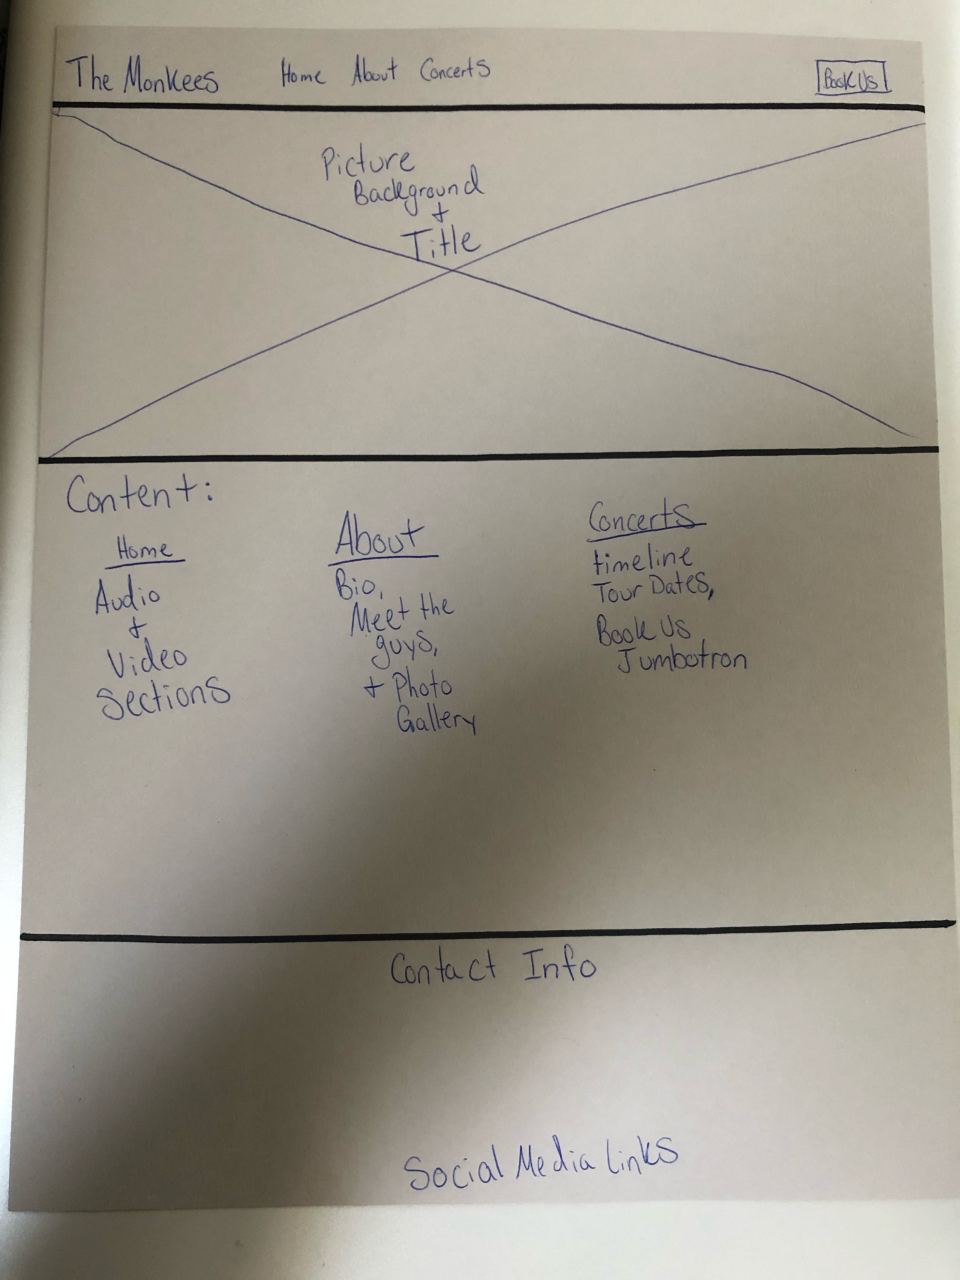 The Monkees Home About Concerts Book Us
Picture
Background
+
Title
Content:
Home
Audio
+
Video
Sections
About
Bio,
Meet the
guys,
+ Photo
Gallery
Concerts
timeline
Tour Dates,
Book Us
Jumbotron
Contact Info
Social Media Links